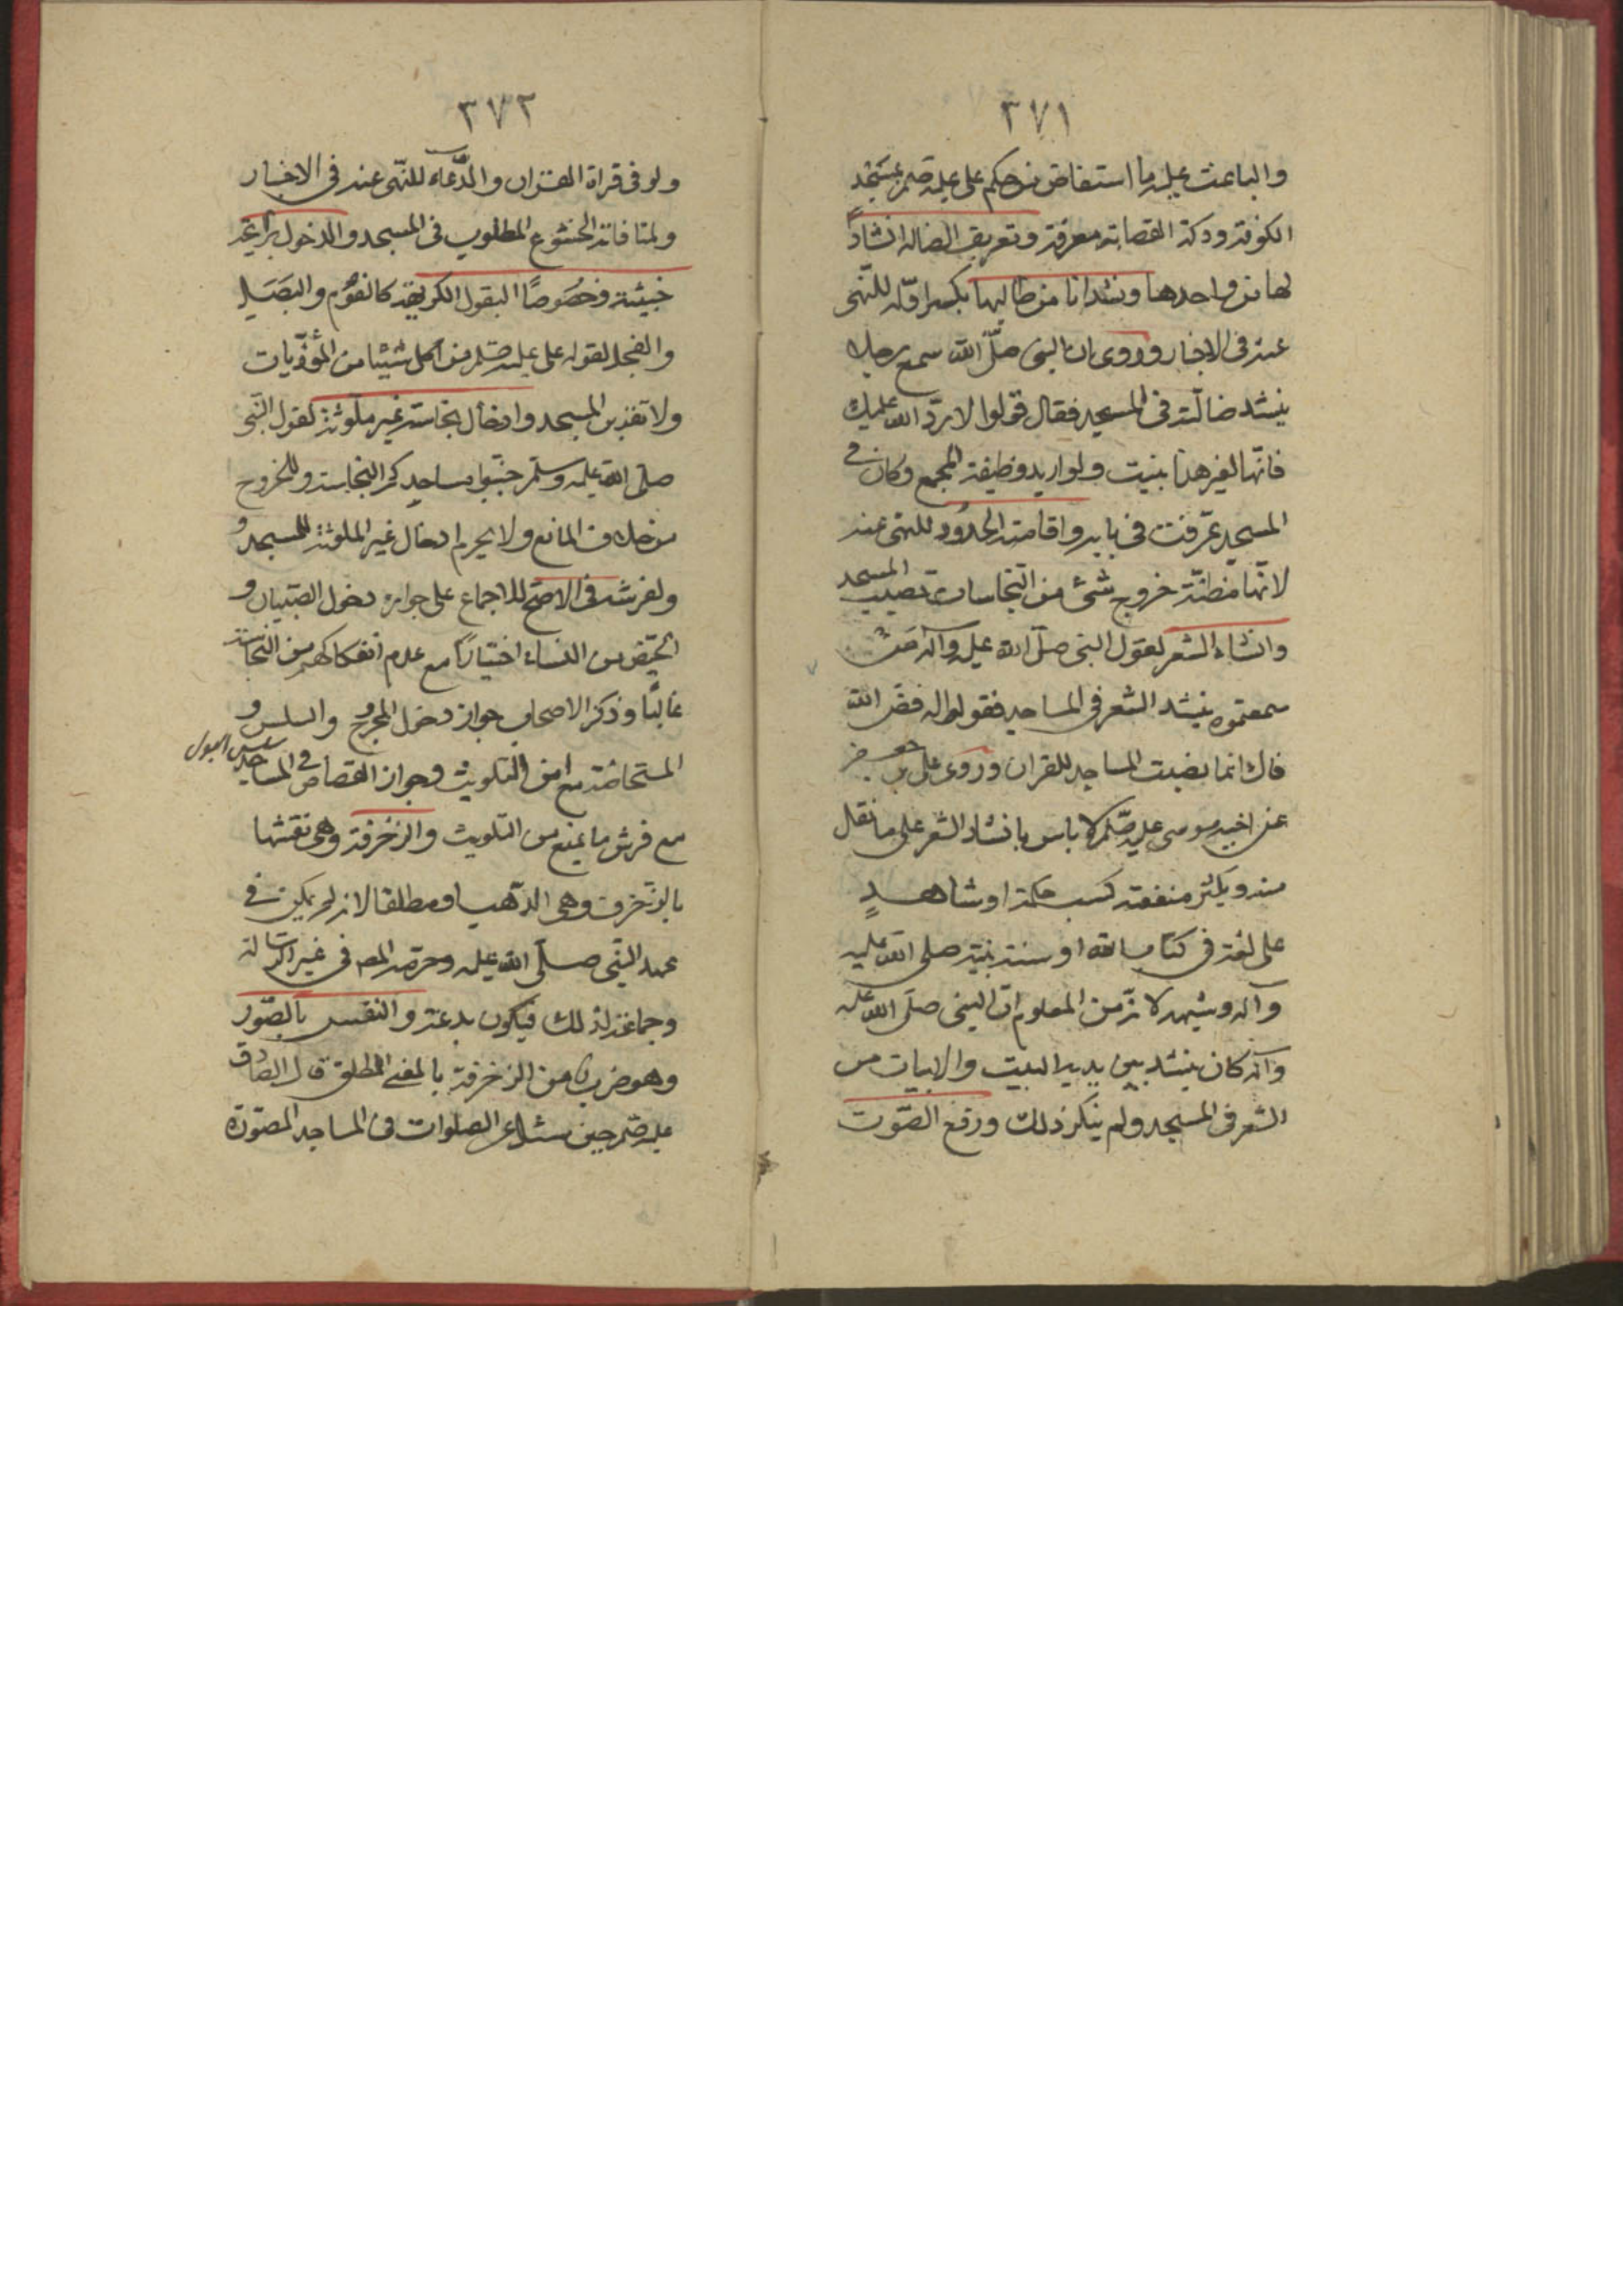 ٣٧١
والباعث عليه ما استفاض من حكم علي عليه بمسجد
الكوفة ودكة القضا به معرفة وتعريف الضاله انشادًا
لها من واجدها ونشدانا من طالبها بكسر اوّله للنّهى
عنه فى الاخبار وروى ان النبى صلّى الله سمع رجلا
ينشد ضالّة فى المسجد فقال قولوا لا ردّ الله عليك
فانّها لغير هذا بنيت ولو اريد وظيفة المجمع وكان فى
المسجد عرّفت فى بابه واقامة الحدُود للنهى عنه
لانّها مضانّة خروج شئ من النّجاسات تصيب المسجد
وانشاد الشعر لقول النبى صلّى الله عليه وآله مَن
سمعتموه ينشد الشعر فى المساجد فقولوا له فضّ الله
فاك انما نصبت المساجد للقران وروى على بن جعفر
عن اخيه موسى عليه لا باس بانشاد الشعر على ما نقل
منه ويكثر منفعته كبيت حكمة او شاهدٍ
على لغة فى كتاب الله او سنة نبيّه صلى الله عليه
وآله وشبهه لانّه من المعلوم انّ النبى صلّى الله عليه
وآله كان ينشد بين يديه البيت والابيات من
الشعر فى المسجد ولم ينكر ذلك ورفع الصّوت
٣٧٢
ولو فى قراة القران والدّعاء للنّهى عنه فى الاخبار
ولمنافاته الخشوع المطلوب فى المسجد والدخول برايحة
خبيثة وخصُوصًا البقول الكريهة كالثوم والبَصَل
والفجل لقوله على عليه من اكل شيئا من المؤذيات
ولا تقذير المسجد وادخال نجاسة غير ملوثة لقول النّبى
صلى الله عليه وسلم جنّبوا مساجدكم النجاسة وللخروج
من خلاف المانع ولا يحرم ادخال غير الملوثة للمسجد و
ولفرشه فى الاصح للاجماع على جواز دخول الصّبيان و
الحيّض من النساء اختيارًا مع عدم انفكاكهم من النّجاسة
غالبًا وذكر الاصحاب جواز دخول المجروح والسلس و
سلس البول
المستحاضة مع امن التلويث وجواز القصاص فى المساجد
مع فرش ما يمنع من التلويث والزخرفة وهى نقشها
بالزّخرف وهى الذّهب او مطلقا لانه لم يكن فى
عهد النّبى صلّى الله عليه وحرّمه المص فى غير الرسالة
وجماعة لذلك فيكون بدعة والنقش بالصّور
وهو ضرب من الزخرفة بالمعنى المطلق قال الصّادق
عليه حين سئل عن الصلوات فى المساجد المصوّرة